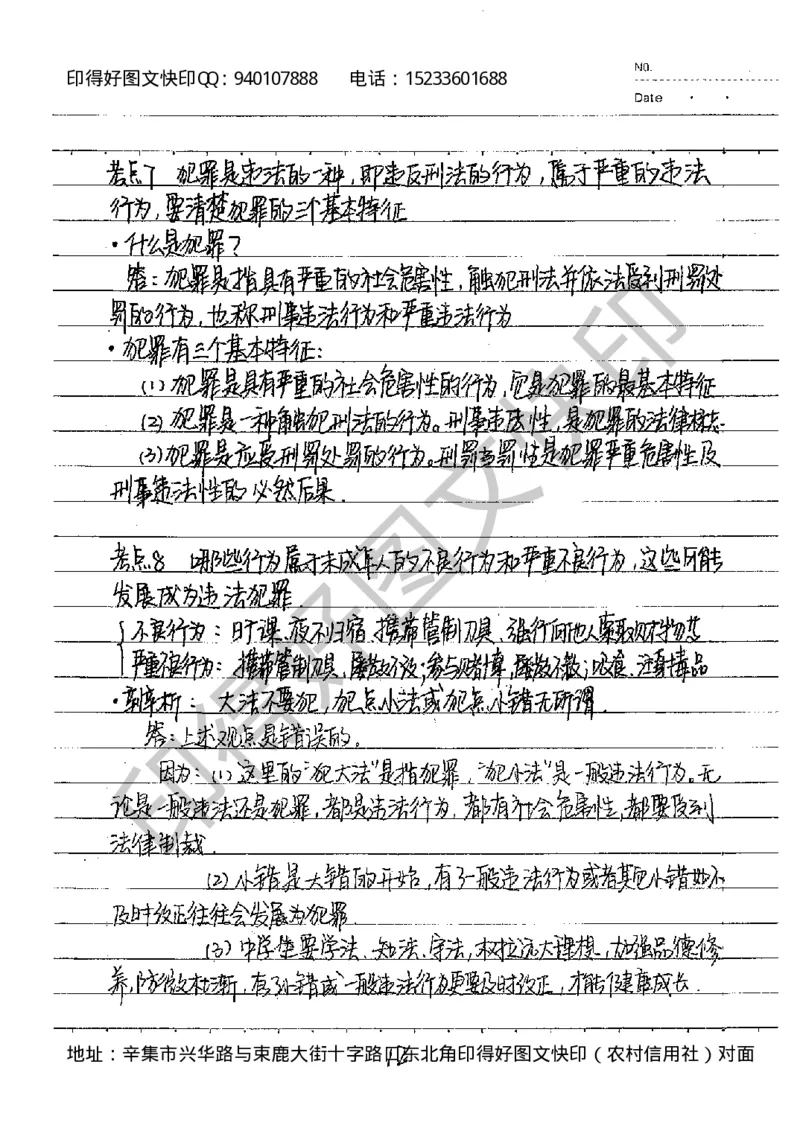 印得好图文快印QQ：940107888 电话：15233601688
NO.
Date
考点7 犯罪是违法的一种，即违反刑法的行为，属于严重的违法
行为，要清楚犯罪的三个基本特征
·什么是犯罪？
答：犯罪是指具有严重的社会危害性，触犯刑法并依法受到刑罚处
罚的行为，也称刑事违法行为和严重违法行为
·犯罪有三个基本特征：
(1) 犯罪是具有严重的社会危害性的行为，它是犯罪的最基本特征
(2) 犯罪是一种触犯刑法的行为。刑事违法性，是犯罪的法律标志.
(3) 犯罪是应受刑罚处罚的行为。刑罚当罚性是犯罪严重危害性及
刑事违法性的必然后果.
考点8 哪些行为属于未成年人的不良行为和严重不良行为，这些可能
发展成为违法犯罪.
不良行为：旷课、夜不归宿，携带管制刀具、强行向他人索取财物等
严重不良行为：携带管制刀具，屡教不改；参与赌博，屡教不改；吸食、注射毒品
·辨析：大法不要犯，犯点小法或犯点小错无所谓.
答：上述观点是错误的。
因为：(1) 这里的“犯大法”是指犯罪，“犯小法”是一般违法行为。无
论是一般违法还是犯罪，都是违法行为，都有社会危害性，都要受到
法律制裁.
(2) 小错是大错的开始，有了一般违法行为或者其它小错如不
及时改正往往会发展为犯罪.
(3) 中学生要学法、知法、守法，树立远大理想，加强品德修
养，防微杜渐，有了小错或一般违法行为更要及时改正，才能健康成长.
地址：辛集市兴华路与束鹿大街十字路口东北角印得好图文快印（农村信用社）对面
印得好图文快印